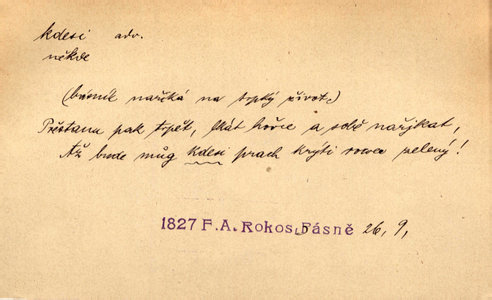 kdesi adv.
někde
(básník naříká na trpký život:)
Přestanu pak trpět, lkát hořce a sobě nařjkat,
Až bude můg kdesi prach krýti rowec zelený!
1827 F.A. Rokos, Básně 26, 9,